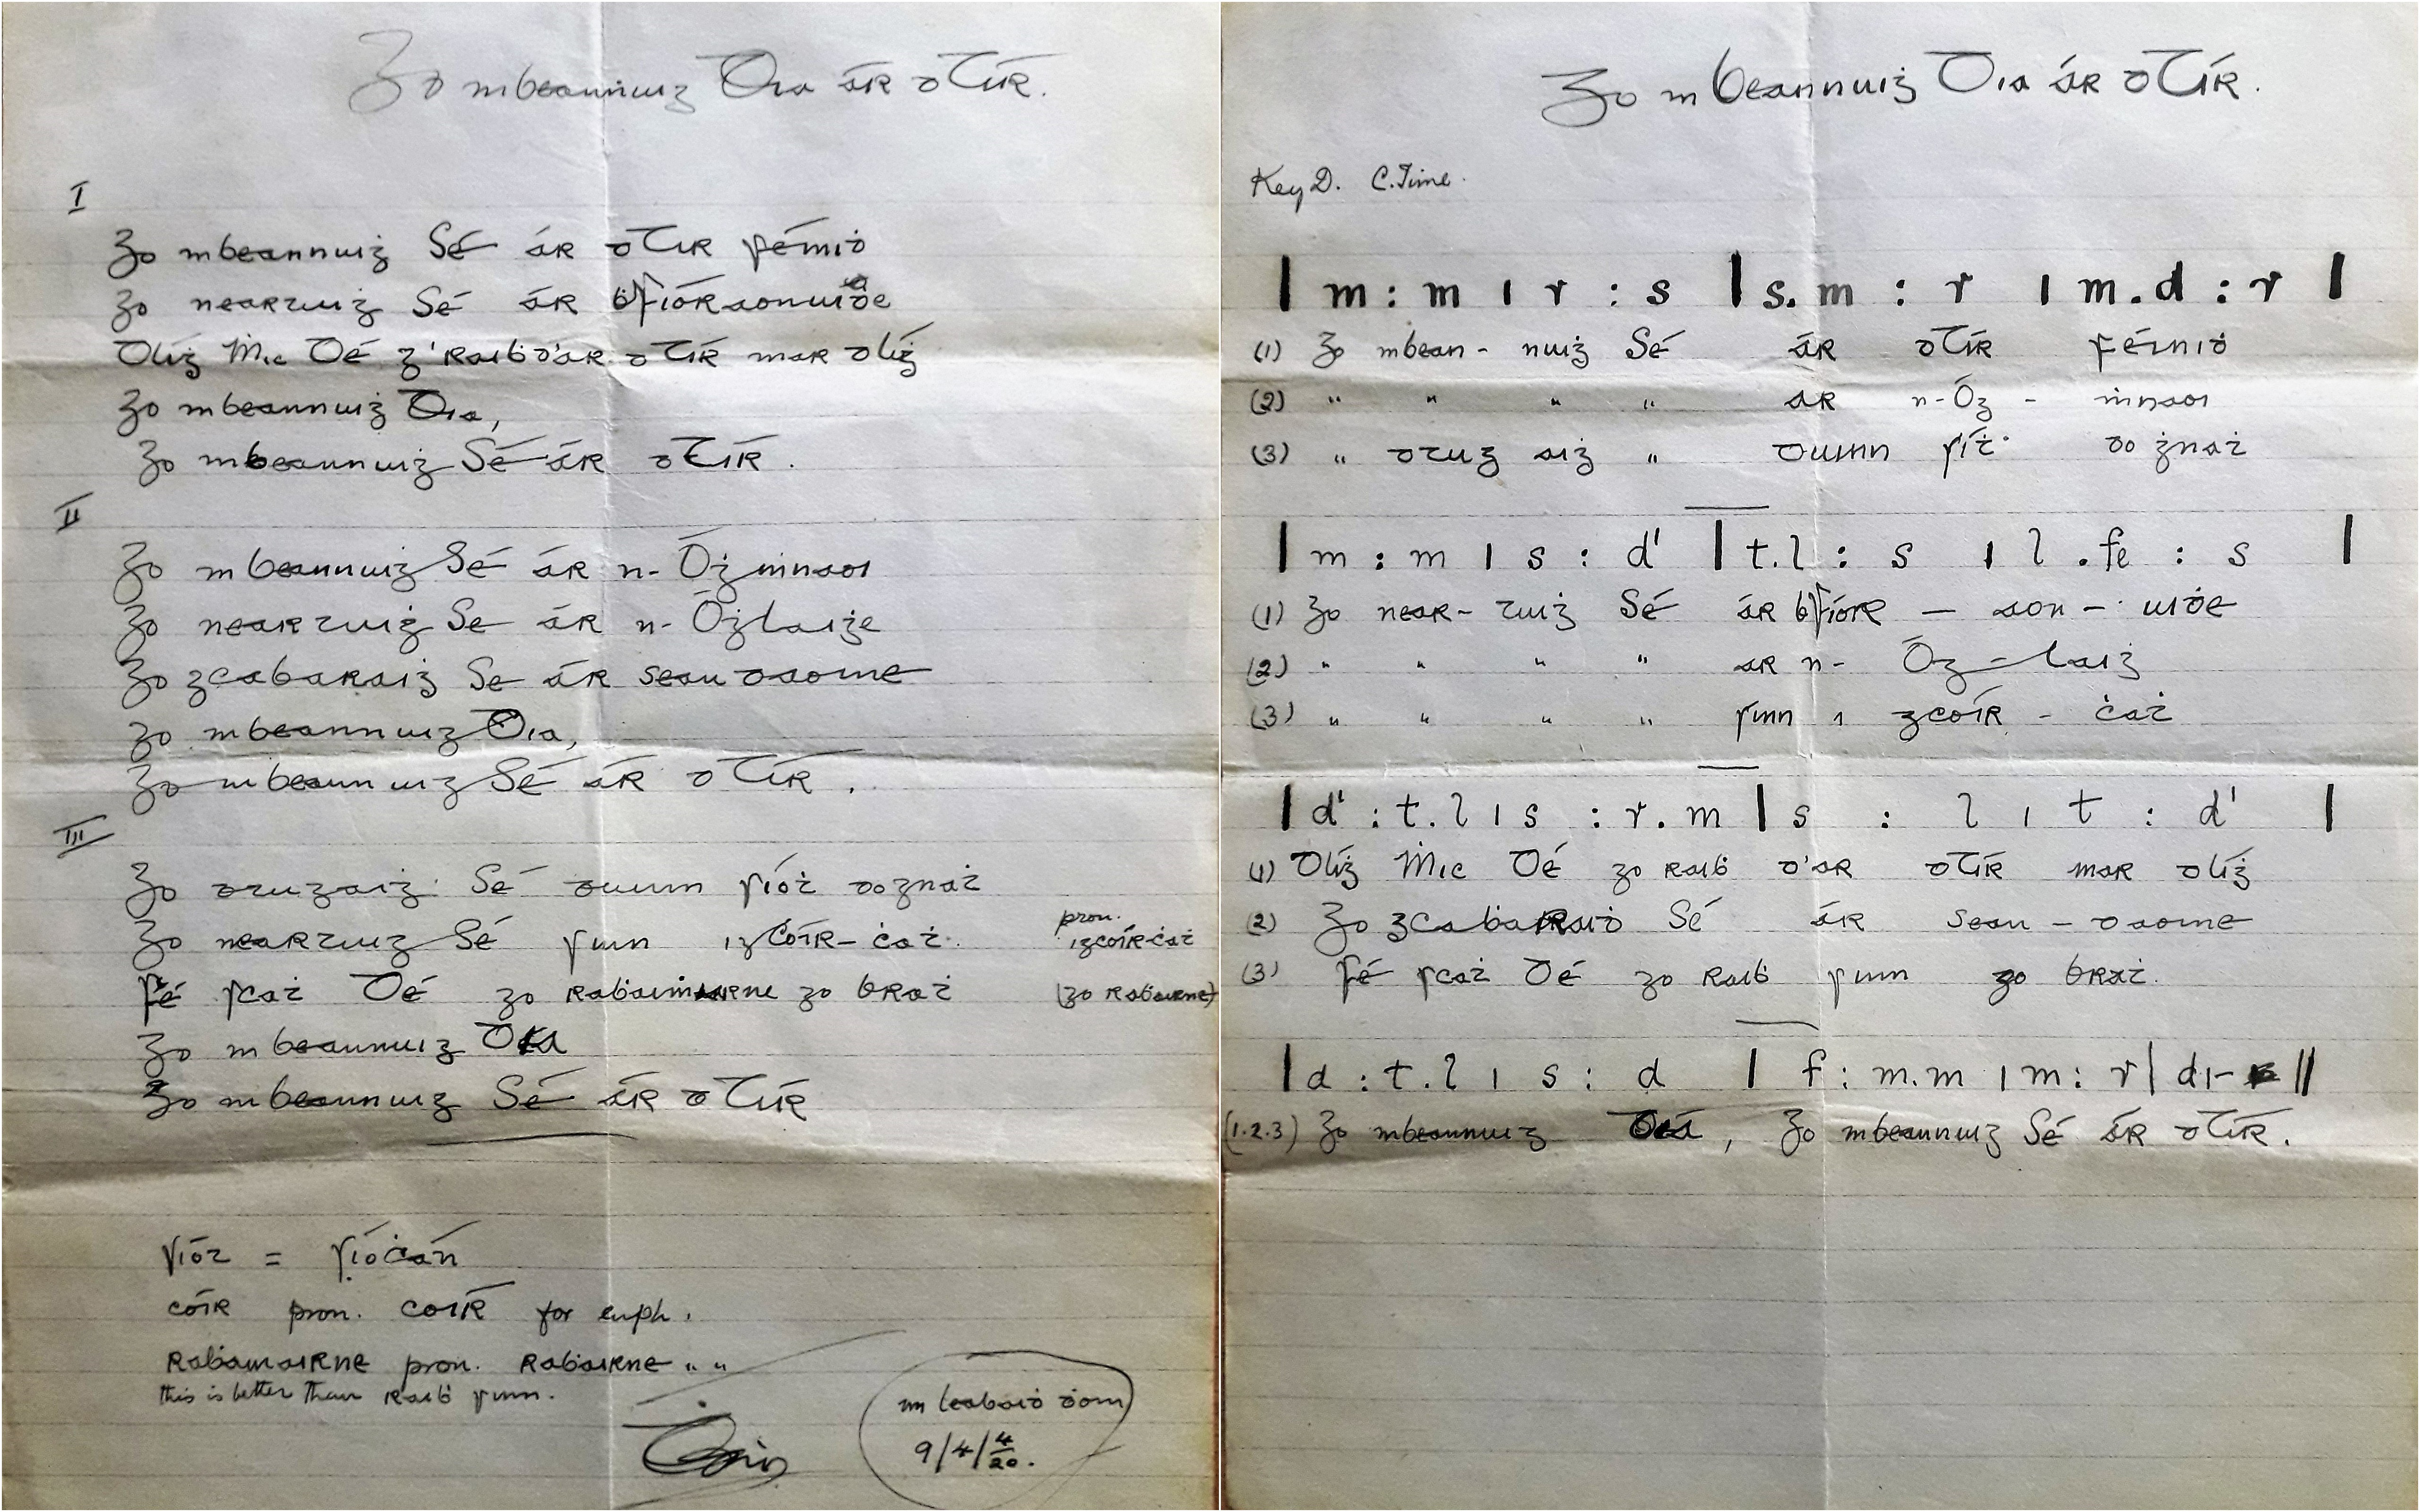 Go mbeannuiġ Dia ár dTír.
I
Go mbeannuiġ Sé ár dTír féiniḋ
Go neartuiġ Sé ár ḃFíoraonuiḋe
Dlíġ Ṁic Dé g'raiḃ d'ár dTír mar dlíġ
Go mbeannuiġ Dia,
Go mbeannuiġ Sé ár dTír.
II
Go mbeannuiġ Sé ár n-Óġṁnaoi
Go neartuiġ Se ár n-Óġlaiġe
Go gcabaraiġ Se ár seandaoine
Go mbeannuiġ Dia,
Go mbeannuiġ Sé ár dTír.
III
Go dtugaiġ Sé duinn síoṫ do ġnáṫ
Go neartuiġ Sé sinn i gCóir-ċaṫ. pron. i gcóir-ċaṫ
Fé scáṫ Dé go raḃaimairne go bráṫ (go raḃairne)
Go mbeannuiġ Dia
Go mbeannuiġ Sé ár dTír
síoṫ = síoċán
cóir pron. coír for euph.
Raḃamairne pron. Raḃairne " "
this is better than raiḃ sinn.
im leabaiḋ ḋom
9/4/4/20.
Go mbeannuiġ Dia ár dTír.
Key D. C. Time.
| m : m | r : s | s.m : r | m.d : r |
(1) Go mbean- nuiġ Sé ár dTír féiniḋ
(2) " " " " ár n-Óġ - ṁnaoi
(3) " dtug aiġ " duinn síṫ do ġnáṫ
| m : m | s : d' | t.l : s | l .fe : s |
(1) Go near- tuiġ Sé ár ḃFíor — aon - uiḋe
(2) " " " " ár n- Óġ - laiġ
(3) " " " " sinn i gcóir - ċaṫ
| d' : t.l | s : r.m | s : l | t : d' |
(1) Dlíġ Ṁic Dé go raiḃ d'ár dTír mar dlíġ
(2) Go gcabaraiḋ Sé ár sean - daoine
(3) Fé scáṫ Dé go raiḃ sinn go bráṫ.
| d : t.l | s : d | f : m.m | m : r | d | - ||
(1.2.3) Go mbeannuiġ Dia, Go mbeannuiġ Sé ár dTír.